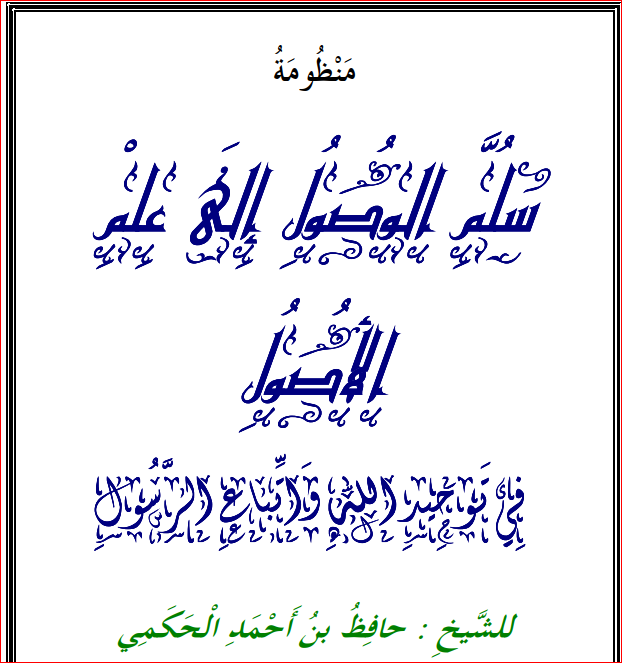 مَنْظُومَةُ
سُلَّمِ الْوُصُولِ إِلَى عِلْمِ
الأُصُولِ
فِي تَوحِيدِ اللهِ وَاتِّبَاعِ الرَّسُولِ
للشَّيخِ : حافِظُ بنُ أَحْمَدِ الْحَكَمِي